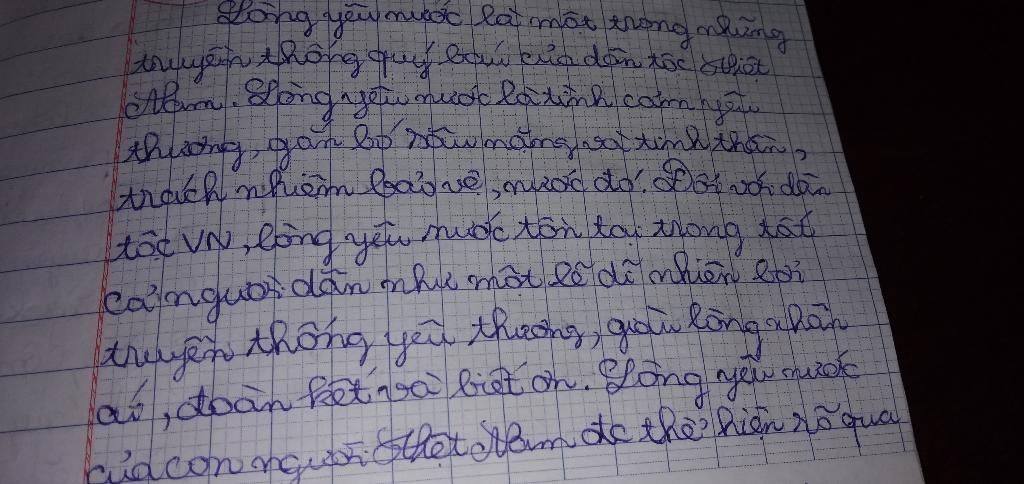 Lòng yêu nước là một trong những
truyền thống quý báu của dân tộc Việt
Nam. Lòng yêu nước là tình cảm yêu
thương, gắn bó sâu nặng và tinh thần,
trách nhiệm bảo vệ, nước đó. Đối với dân
tộc VN, lòng yêu nước tồn tại trong tất
cả người dân như một lẽ dĩ nhiên bởi
truyền thống yêu thương, giàu lòng nhân
ái, đoàn kết và biết ơn. Lòng yêu nước
của con người Việt Nam đc thể hiện rõ qua